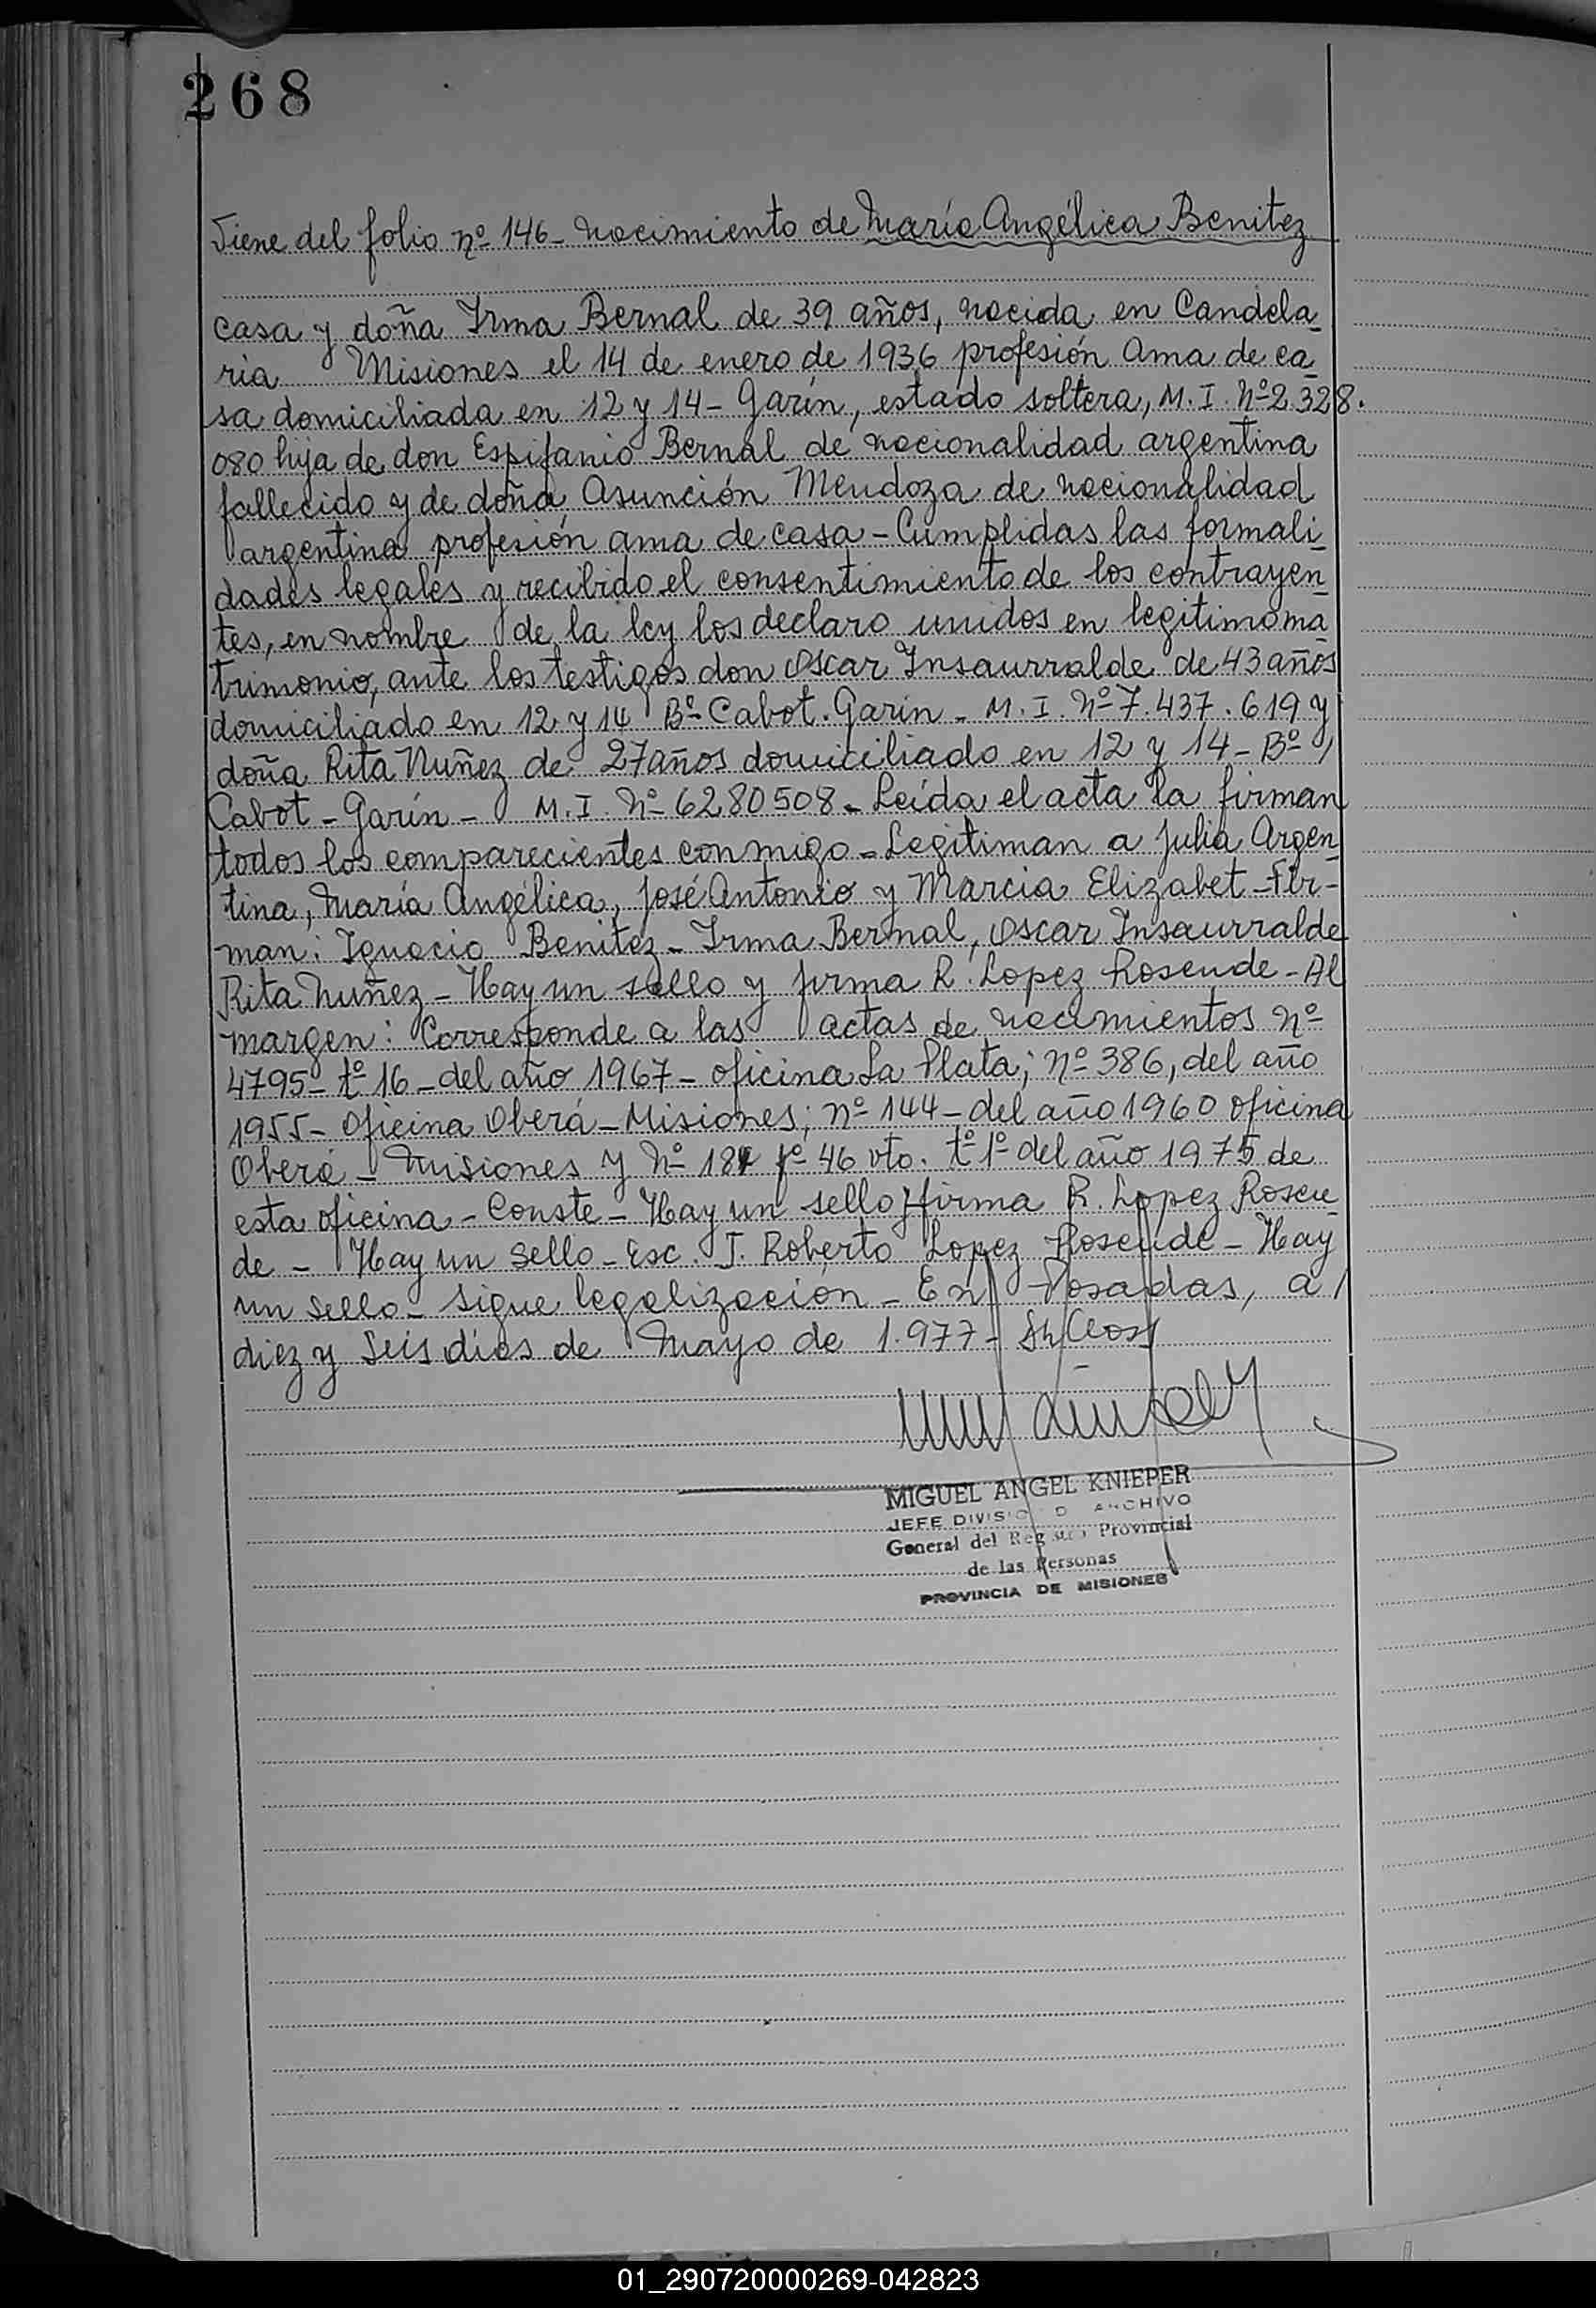 268
Viene del folio nº 146 - nacimiento de María Angélica Benitez
casa y doña Irma Bernal de 39 años, nacida en Candela
ria Misiones el 14 de enero de 1936 profesión Ama de ca
sa domiciliada en 12 y 14 - Garín, estado soltera, M. I. Nº 2.328.
080 hija de don Espifanio Bernal de nacionalidad argentina
fallecido y de doña Asunción Mendoza de nacionalidad
argentina profesión ama de casa - Cumplidas las formali
dades legales y recibido el consentimiento de los contrayen
tes, en nombre de la ley los declaro unidos en legitimo ma
trimonio, ante los testigos don Oscar Insaurralde de 43 años
domiciliado en 12 y 14 Bº Cabot. Garin - M. I. Nº 7.437.619 y
doña Rita Nuñez de 27 años domiciliado en 12 y 14 - Bº /
Cabot - Garín - M. I. Nº 6280508 - Leída el acta la firman
todos los comparecientes conmigo - Legitiman a Julia Argen
tina, María Angélica, José Antonio y Marcia Elizabet - Fir-
man: Ignacio Benitez - Irma Bernal, Oscar Insaurralde
Rita Nuñez - Hay un sello y firma R. Lopez Rosende - Al
margen: Corresponde a las actas de nacimientos nº
4795 - tº 16 - del año 1967 - oficina La Plata; nº 386, del año
1955 - Oficina Oberá - Misiones; nº 144 - del año 1960 oficina
Oberá - Misiones y Nº fº 46 vto. tº 1º del año 1975 de
esta oficina - Conste - Hay un sello y firma R. Lopez Rosen
de - Hay un sello - Esc. J. Roberto Lopez Rosende - Hay
un sello - sigue legalización - En Posadas, a /
diez y seis días de Mayo de 1.977 -
MIGUEL ANGEL KNIEPER
JEFE DIVISIO D ARCHIVO
General del Registro Provincial
de las Personas
PROVINCIA DE MISIONES
01_290720000269-042823